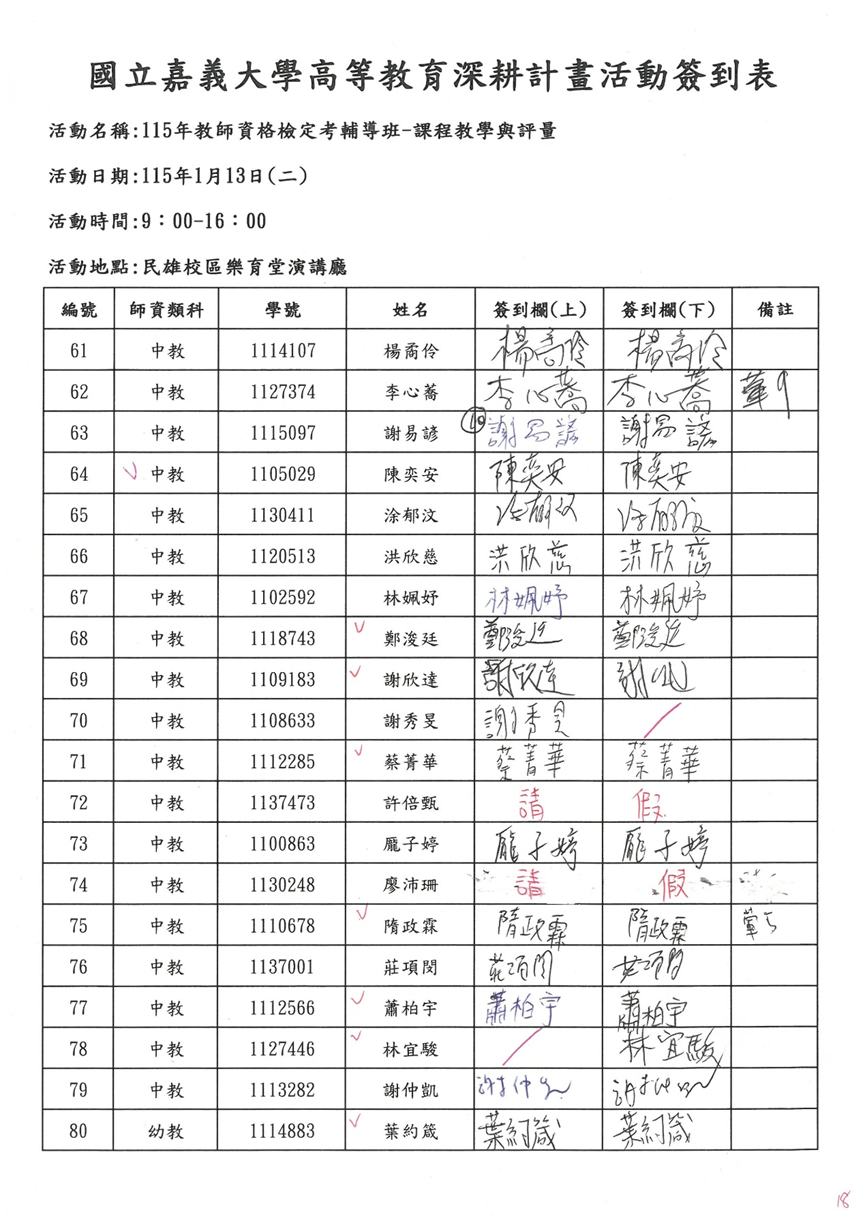 國立嘉義大學高等教育深耕計畫活動簽到表
活動名稱:115年教師資格檢定考輔導班-課程教學與評量
活動日期:115年1月13日(二)
活動時間:9：00-16：00
活動地點:民雄校區樂育堂演講廳
編號 師資類科 學號 姓名 簽到欄(上) 簽到欄(下) 備註
61 中教 1114107 楊喬伶 楊喬伶 楊喬伶
62 中教 1127374 李心蕎 李心蕎 李心蕎 葷
63 中教 1115097 謝易諺 謝易諺 謝易諺
64 中教 1105029 陳奕安 陳奕安 陳奕安
65 中教 1130411 涂郁汶 涂郁汶 涂郁汶
66 中教 1120513 洪欣慈 洪欣慈 洪欣慈
67 中教 1102592 林姵妤 林姵妤 林姵妤
68 中教 1118743 鄭浚廷 鄭浚廷 鄭浚廷
69 中教 1109183 謝欣達 謝欣達
70 中教 1108633 謝秀旻 謝秀旻
71 中教 1112285 蔡菁華 蔡菁華 蔡菁華
72 中教 1137473 許倍甄 請 假
73 中教 1100863 龐子婷 龐子婷 龐子婷
74 中教 1130248 廖沛珊 請 假
75 中教 1110678 隋政霖 隋政霖 隋政霖 葷
76 中教 1137001 莊項閔 莊項閔 莊項閔
77 中教 1112566 蕭柏宇 蕭柏宇 蕭柏宇
78 中教 1127446 林宜駿 林宜駿
79 中教 1113282 謝仲凱 謝仲凱
80 幼教 1114883 葉約箴 葉約箴 葉約箴
18